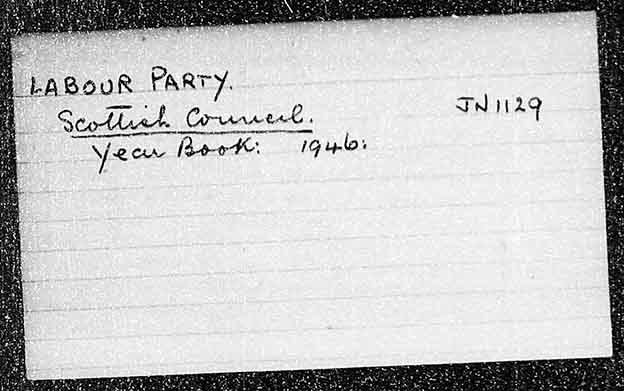 LABOUR PARTY.
Scottish Council. JN1129
Year Book: 1946: